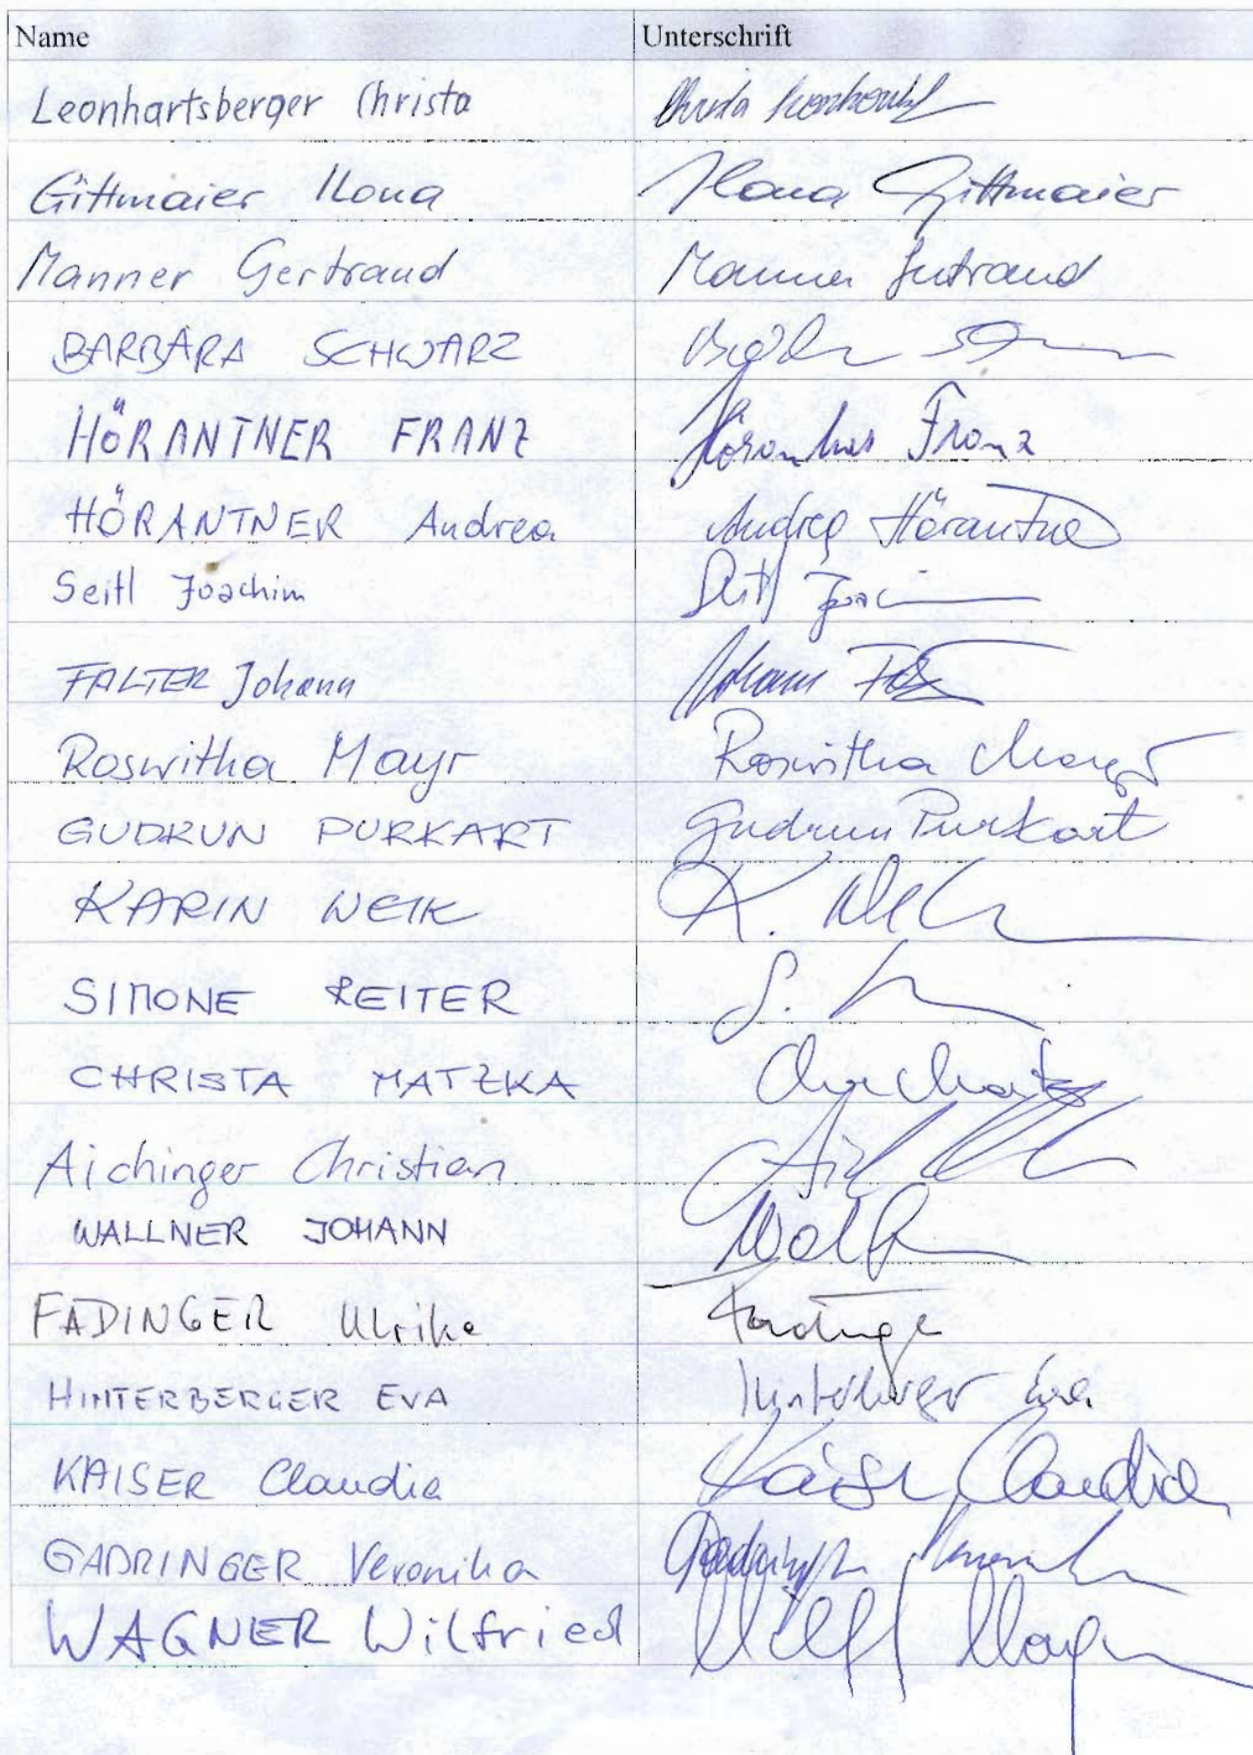 Name Unterschrift
Leonhartsberger Christa
Gittmaier Ilona Ilona Gittmaier
Manner Gertraud Manner Gertraud
BARBARA SCHWARZ
HÖRANTNER FRANZ Hörantner Franz
HÖRANTNER Andrea Andrea Hörantner
Seitl Joachim Seitl
FALTER Johann Johann
Roswitha Mayr Roswitha Mayr
GUDRUN PURKART Gudrun Purkart
KARIN WEIK K.
SIMONE REITER S.
CHRISTA MATZKA
Aichinger Christian
WALLNER JOHANN
FADINGER Ulrike Fadinger
HINTERBERGER EVA Hinterberger Eva
KAISER Claudia Kaiser Claudia
GADRINGER Veronika
WAGNER Wilfried